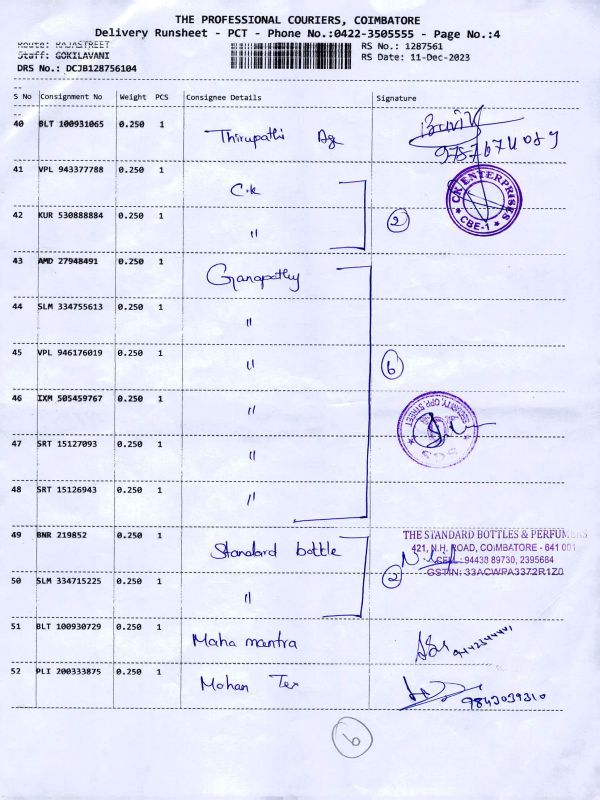 THE PROFESSIONAL COURIERS, COIMBATORE
Delivery Runsheet - PCT - Phone No.:0422-3505555 - Page No.:4
Route: RAJASTREET
RS No.: 1287561
Staff: GOKILAVANI
RS Date: 11-Dec-2023
DRS No.: DCJB128756104
S No Consignment No Weight PCS Consignee Details Signature
40 BLT 100931065 0.250 1 Thirupathi Ag
41 VPL 943377788 0.250 1 C.k
CK ENTERPRISES
* CBE-1 *
42 KUR 530888884 0.250 1 " 2
43 AMD 27948491 0.250 1 Ganapathy
44 SLM 334755613 0.250 1 "
45 VPL 946176019 0.250 1 " 6
46 IXM 505459767 0.250 1 "
47 SRT 15127093 0.250 1 "
48 SRT 15126943 0.250 1 "
49 BNR 219852 0.250 1 Standard bottle
THE STANDARD BOTTLES & PERFUMERS
421, N.H. ROAD, COIMBATORE - 641 001
CELL : 94438 89730, 2395684
GSTIN: 33ACWPA3372R1Z0
50 SLM 334715225 0.250 1 " 2
51 BLT 100930729 0.250 1 Maha mantra
52 PLI 200333875 0.250 1 Mohan Tex 9843039310
6